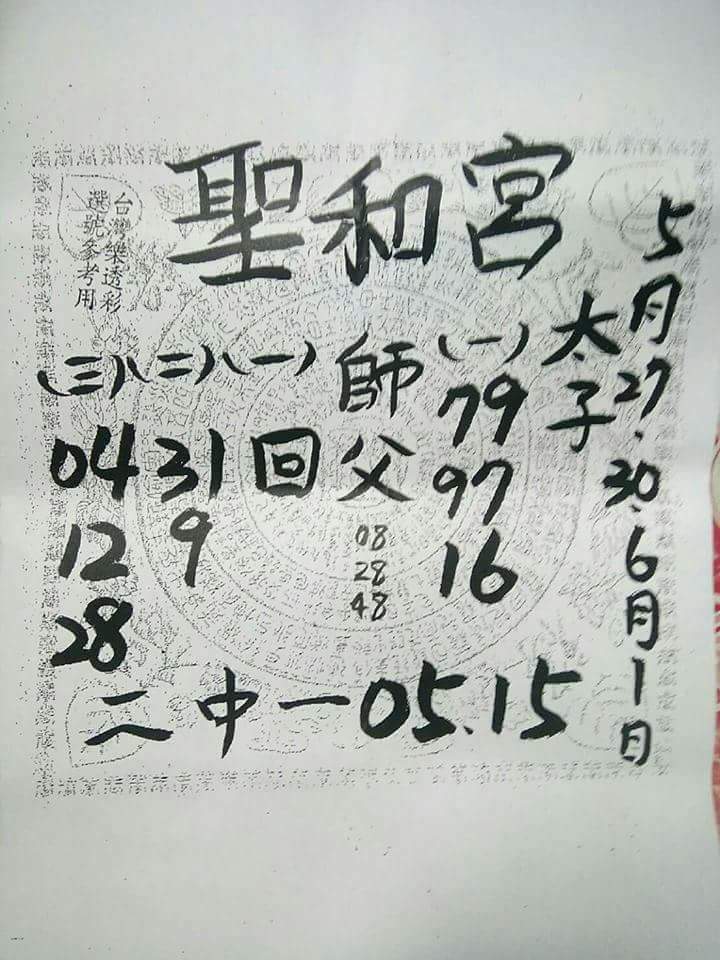 聖和宮
台灣樂透彩
選號參考用
5月27.30.6月1日
太子
(一)
79
97
16
師父
08
28
48
(一)
回
(二)
31
9
(三)
04
12
28
二中一05.15